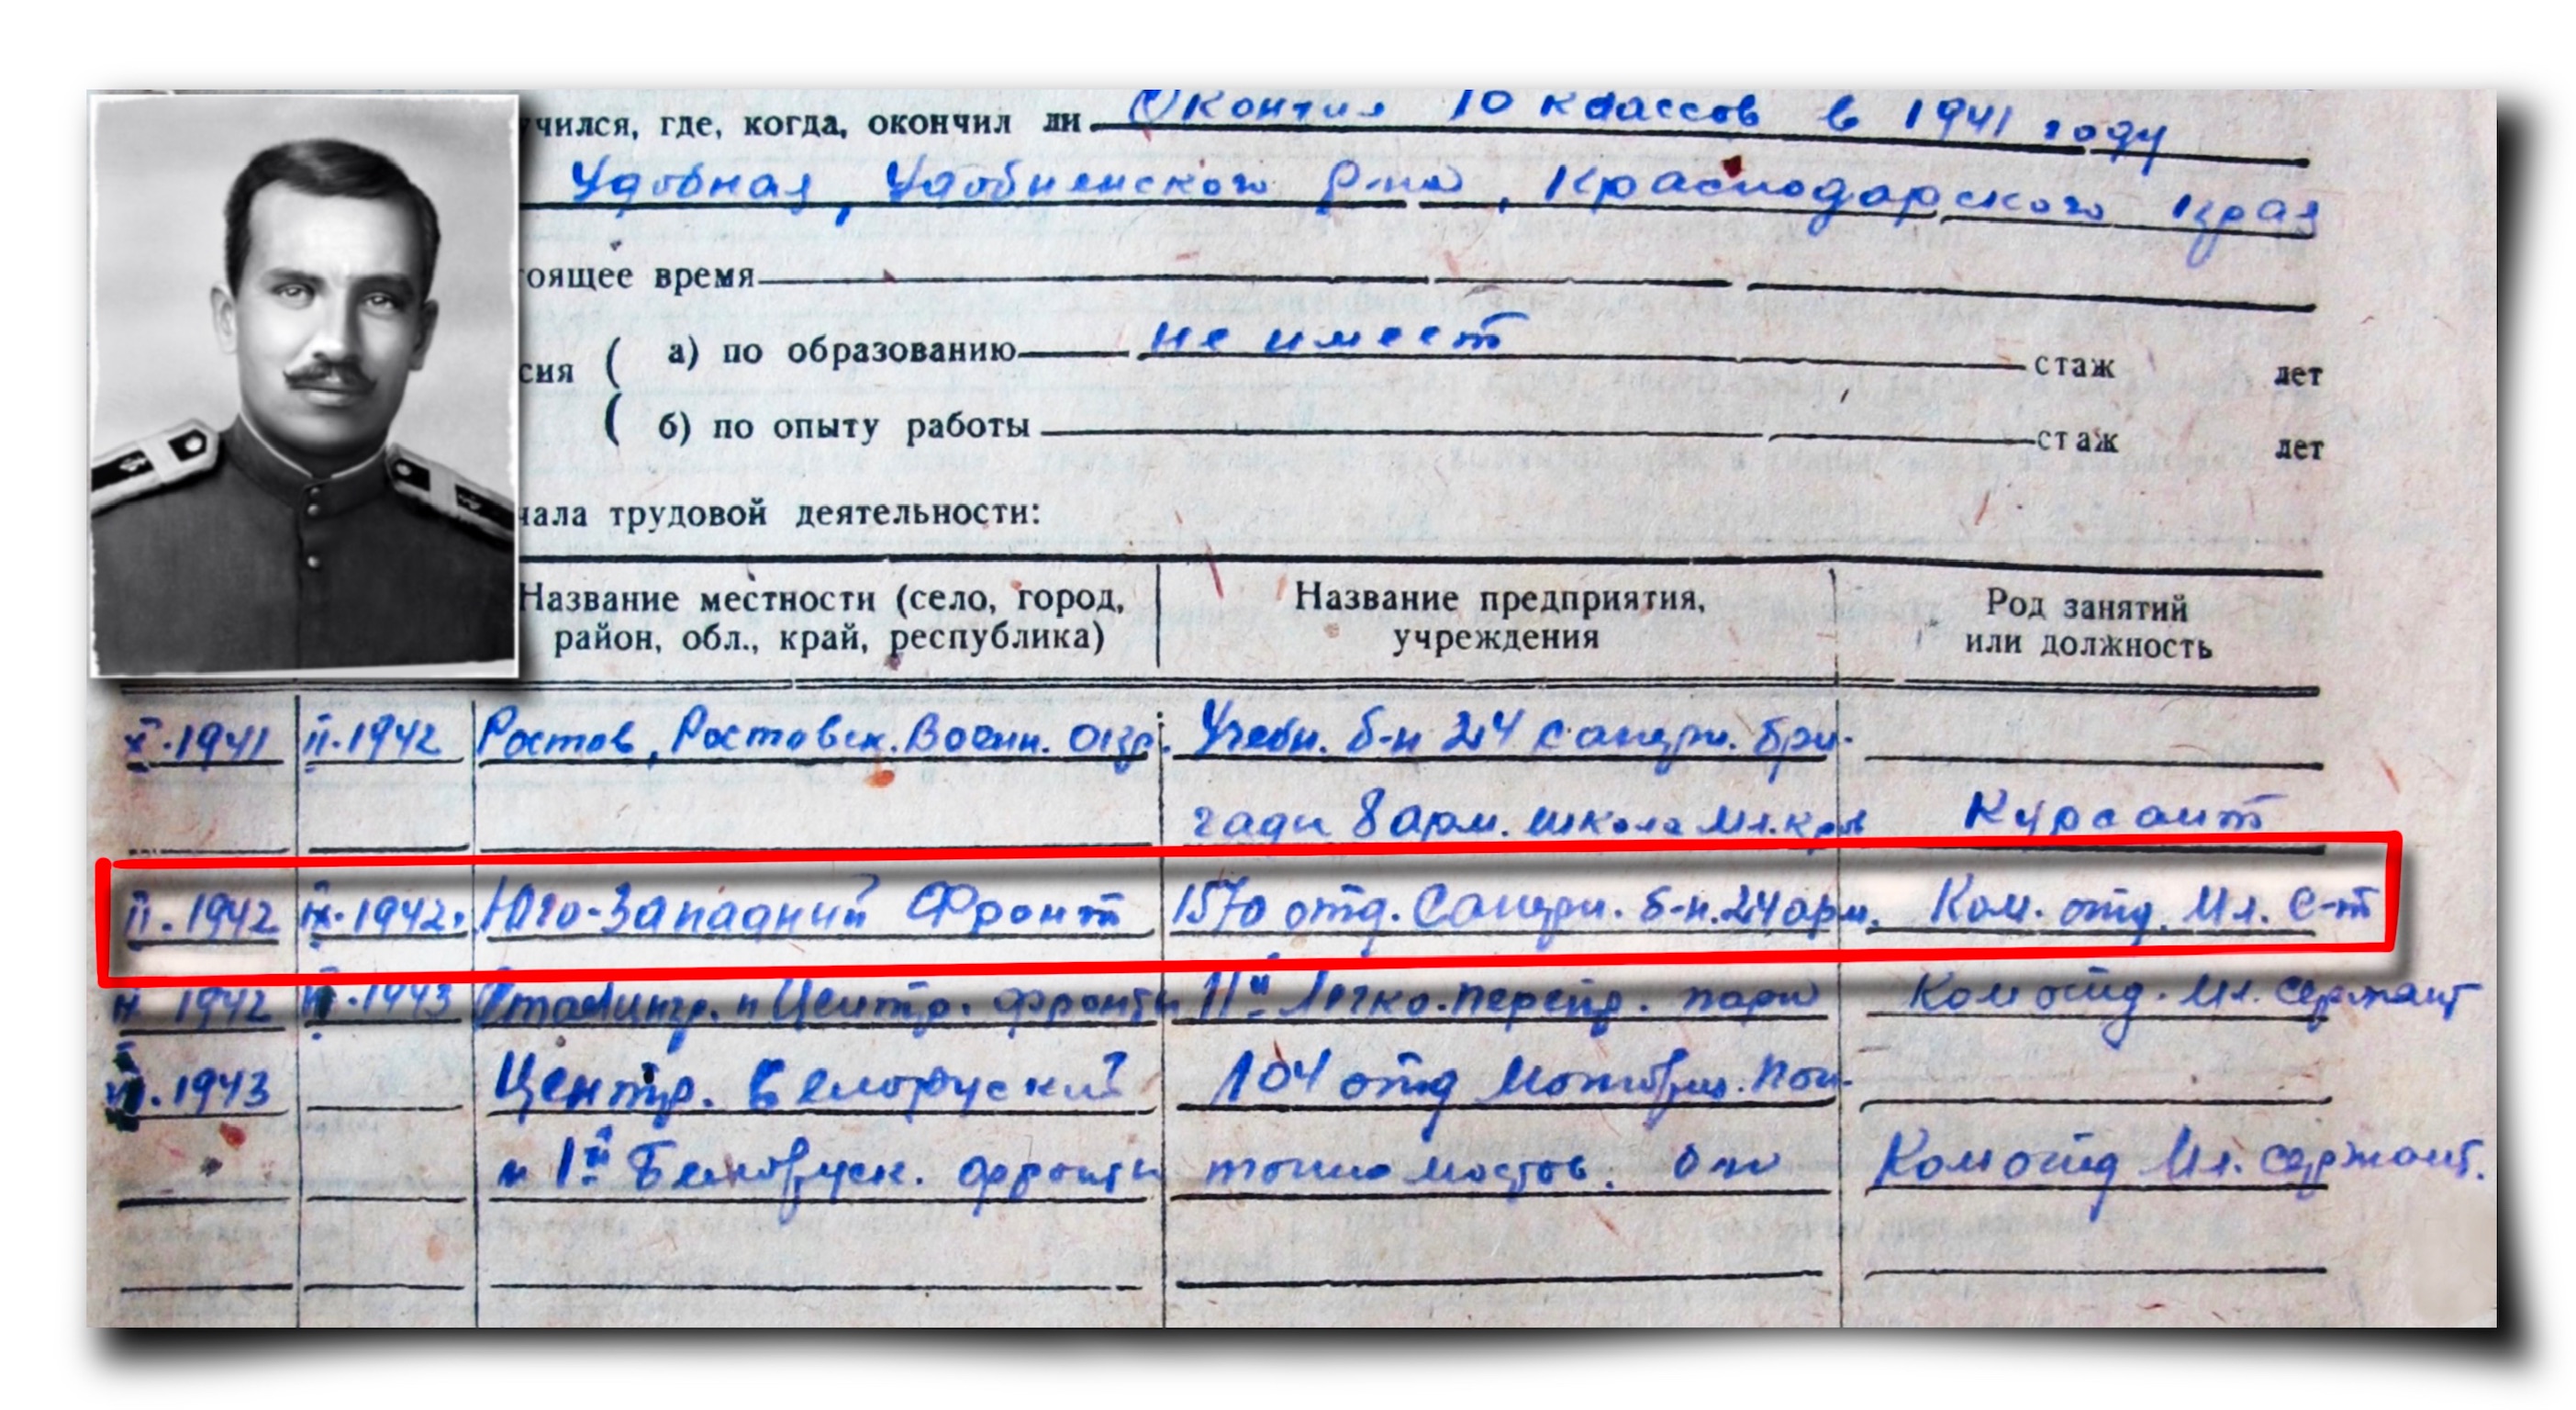 чился, где, когда, окончил ли Окончил 10 классов в 1941 году
Удобная, Удобненского р-на, Краснодарского края
оящее время
сия ( а) по образованию не имеет стаж лет
( б) по опыту работы стаж лет
чала трудовой деятельности:
Название местности (село, город, район, обл., край, республика) Название предприятия, учреждения Род занятий или должность
X.1941 II.1942 Ростов, Ростовск. Военн. окр. Учебн. б-н 24 саперн. бри-
гады 8 арм. школа мл. к-ров Курсант
II.1942 IX.1942. Юго-Западный Фронт 1570 отд. Саперн. б-н. 24 арм. Ком. отд. Мл. С-т
IX 1942 .1943 Сталингр. и Центр. фронты 11й Легко-перепр. парк Ком отд. Мл. сержант
.1943 Центр. Белоруский 104 отд Мотобуд. пон-
и 1й Белоруск. фронты тонно мостов. б-н Ком отд Мл. сержант.